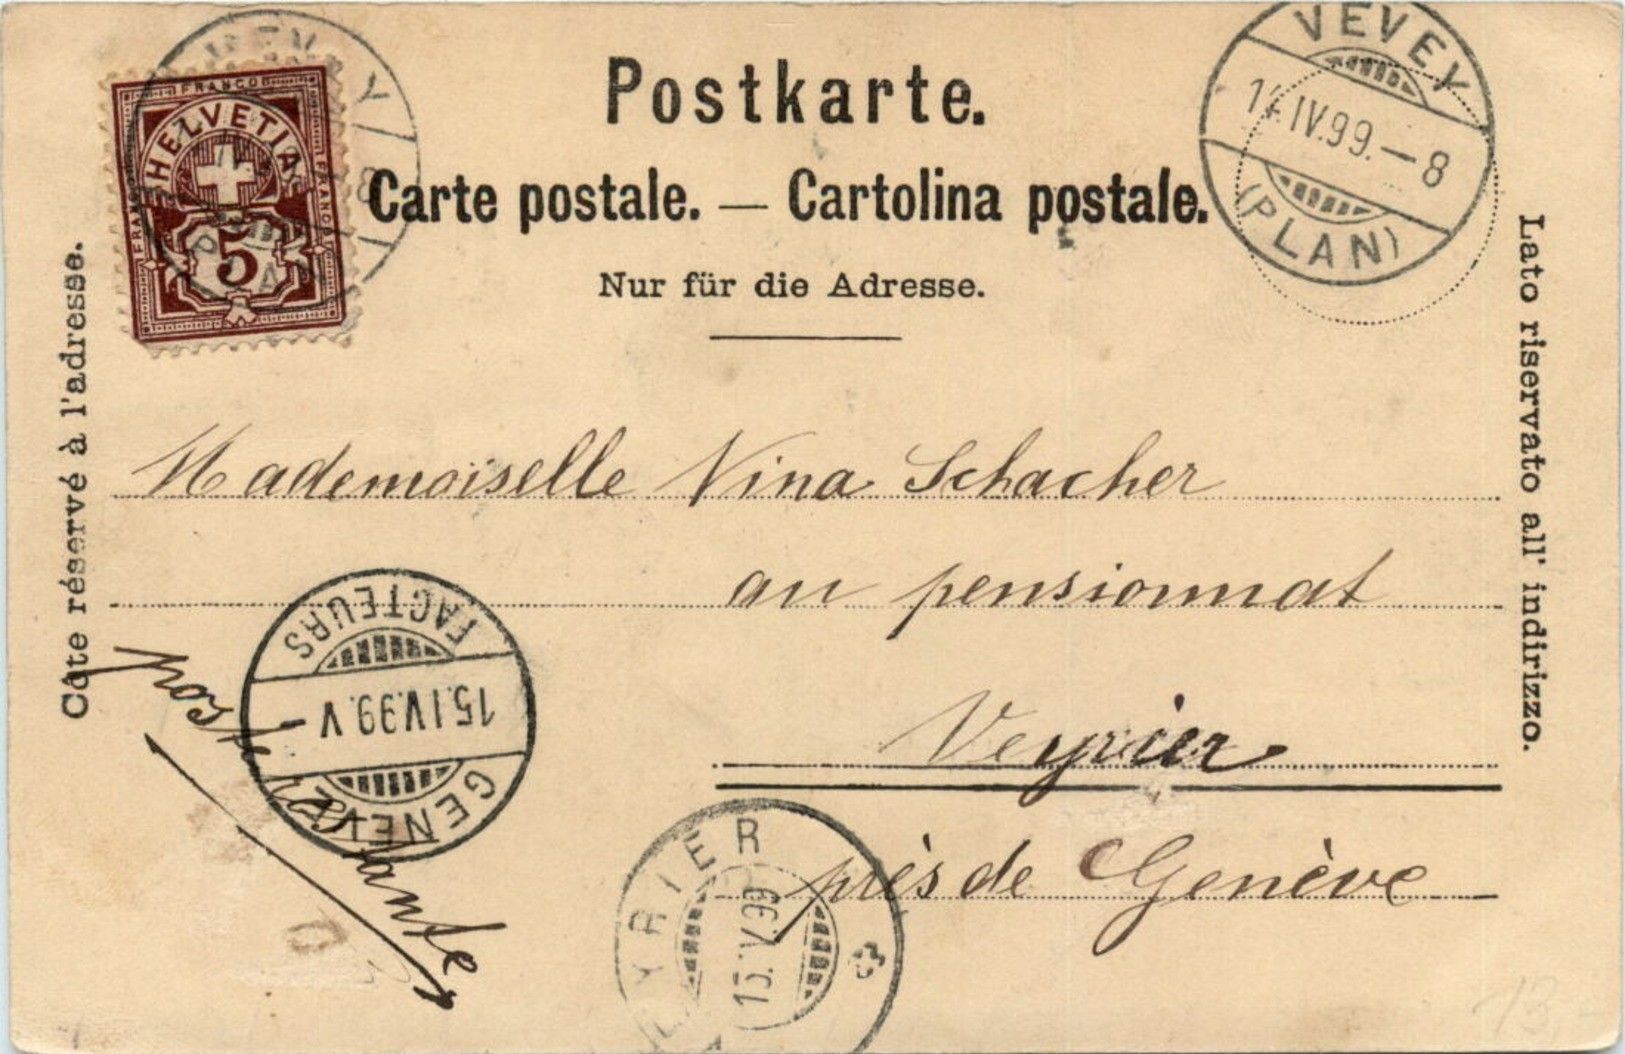 Postkarte.
Carte postale. — Cartolina postale.
Nur für die Adresse.
Côte réservé à l'adresse.
Lato riservato all' indirizzo.
FRANCO
FRANCO
FRANCO
HELVETIA
5
VEVEY
14.IV.99.–8
(PLAN)
Mademoiselle Nina Schacher
au pensionnat
Veyrier
près de Genève
poste restante
GENEVE
15.IV.99.V
FACTEURS
VEYRIER
15.IV.99
13,-